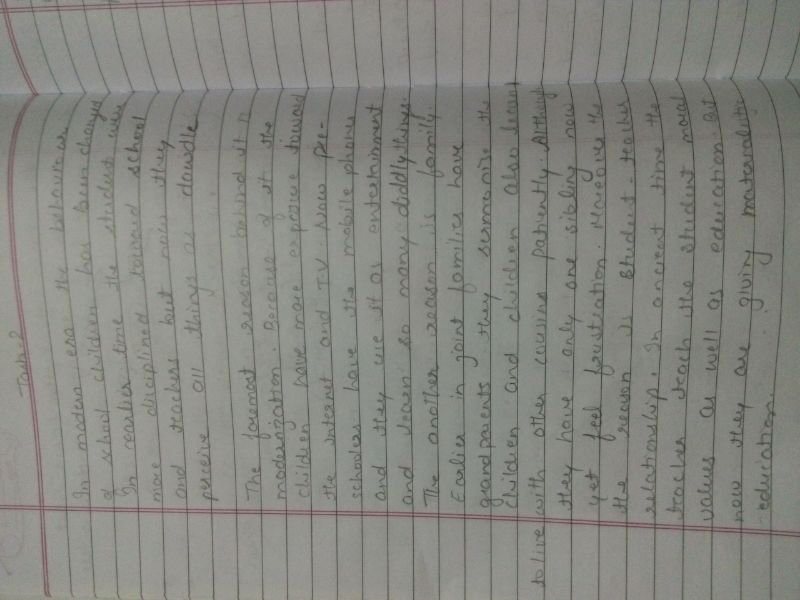 Task-2
In modern era the behaviour
of school children has been changed
In earlier time the student were
more disciplined toward school
and teachers but now they
perceive all things as dawdle.
The foremost reason behind it is
modernization. Because of it the
children have more exposure toward
the internet and TV. Now pre-
schoolers have the mobile phones
and they use it as entertainment
and learn so many diddly things.
The another reason is family.
Earlier in joint families have
grandparents they sermonize the
children and children also learn
to live with other cousins patiently. Although
they have only one sibling now
yet feel frustration. Moreover the
the reason is student-teacher
relationship. In ancient time the
teacher teach the student moral
values as well as education. But
now they are giving materialistic
education.